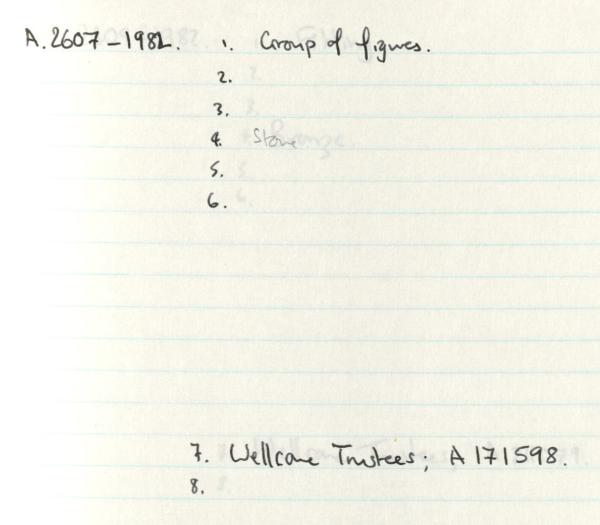 A.2607-1982. 1. Group of figures.
2.
3.
4. Stone
5.
6.
7. Wellcome Trustees; A 171598.
8.